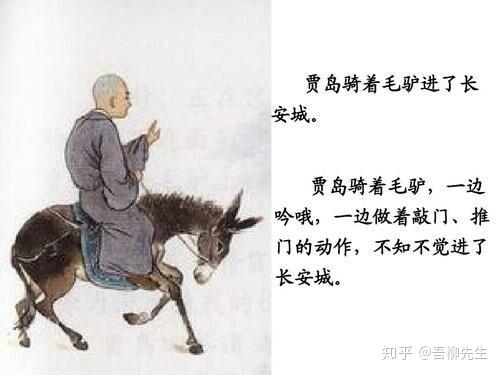 贾岛骑着毛驴进了长
安城。
贾岛骑着毛驴，一边
吟哦，一边做着敲门、推
门的动作，不知不觉进了
长安城。
知乎 @吾柳先生